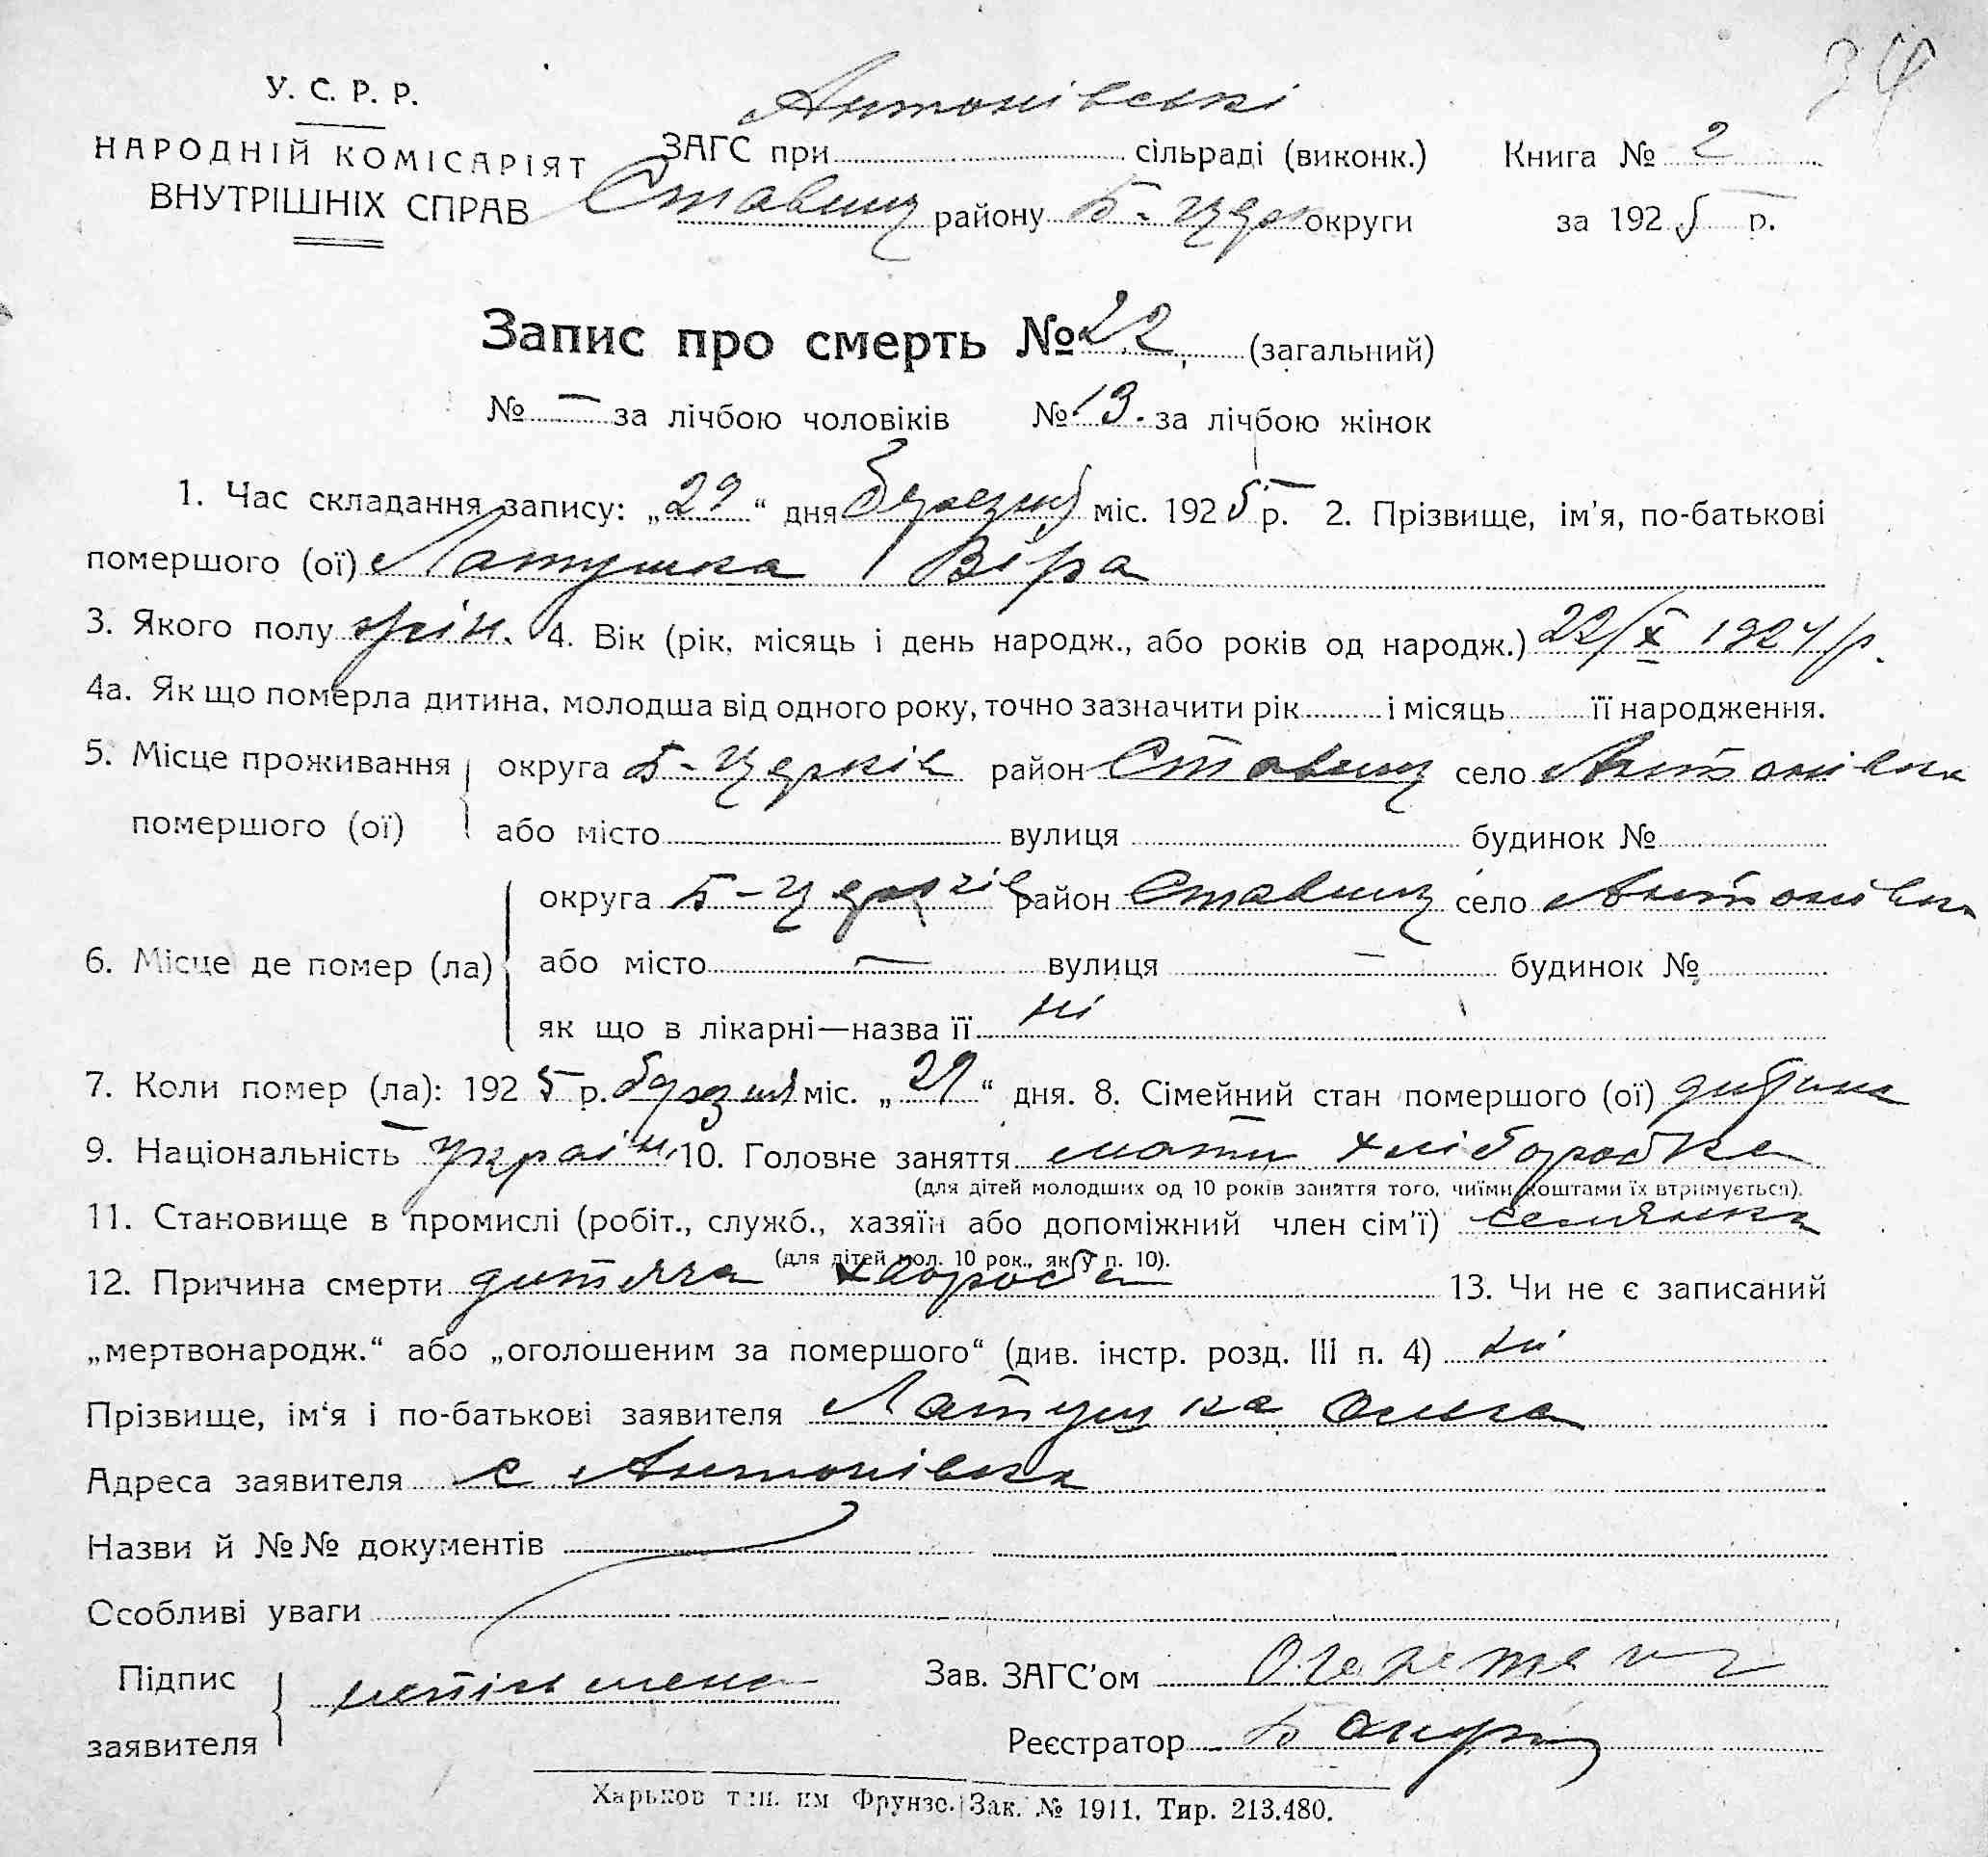 34
У. С. Р. Р.
НАРОДНІЙ КОМІСАРІЯТ
ВНУТРІШНІХ СПРАВ
Антонівські
ЗАГС при сільраді (виконк.) Книга № 2
Ставищ району Б-Церк округи за 1925 р.
Запис про смерть № 22 (загальний)
№ — за лічбою чоловіків № 13. за лічбою жінок
1. Час складання запису: „29“ дня Березня міс. 1925 р. 2. Прізвище, ім'я, по-батькові
помершого (ої) Латушка Віра
3. Якого полу жін. 4. Вік (рік, місяць і день народж., або років од народж.) 22/X 1924 р.
4а. Як що померла дитина, молодша від одного року, точно зазначити рік і місяць її народження.
5. Місце проживання помершого (ої) округа Б-Церків район Ставищ село Антонівка
або місто вулиця будинок №
6. Місце де помер (ла) округа Б-Церків район Ставищ село Антонівка
або місто — вулиця — будинок №
як що в лікарні—назва її ні
7. Коли помер (ла): 1925 р. березня міс. „29“ дня. 8. Сімейний стан помершого (ої) дитина
9. Національність україн. 10. Головне заняття мати хліборобка
(для дітей молодших од 10 років заняття того, чиїми коштами їх втримується).
11. Становище в промислі (робіт., служб., хазяїн або допоміжний член сім'ї) селянка
(для дітей мол. 10 рок., як у п. 10).
12. Причина смерти дитяча хвороба 13. Чи не є записаний
„мертвонародж.“ або „оголошеним за помершого“ (див. інстр. розд. III п. 4) ні
Прізвище, ім'я і по-батькові заявителя Латушка Ольга
Адреса заявителя с Антонівка
Назви й №№ документів
Особливі уваги
Підпис заявителя неписьмена Зав. ЗАГС'ом
Реєстратор
Харьков тип. им Фрунзе. Зак. № 1911. Тир. 213.480.